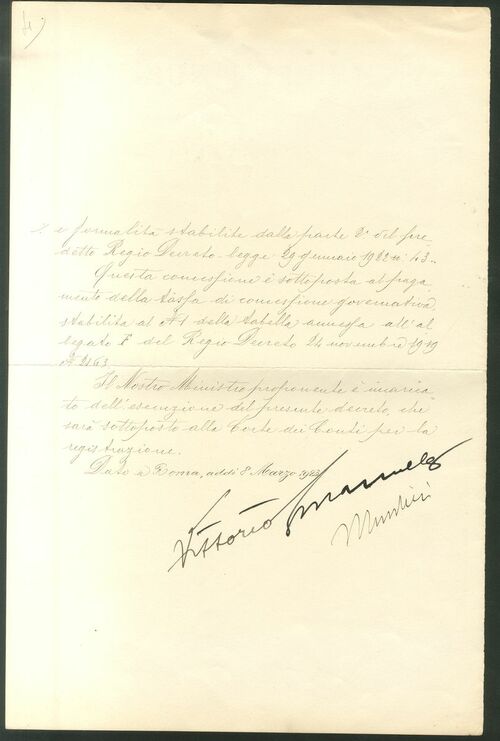 4)
e formalità stabilite dalla parte 2ª del pre_
detto Regio Decreto-legge 29 gennaio 1922 n° 43.
Questa concessione è sottoposta al paga
mento della tassa di concessione governativa,
stabilita al N° 1 della tabella annessa all'al
legato F del Regio Decreto 24 novembre 1919
N° 2163.
Il Nostro Ministro proponente è incarica
to dell'esenzione del presente decreto, che
sarà sottoposto alla Corte dei Conti per la
registrazione.
Dato a Roma, addì 8 Marzo 1923
Vittorio Emanuele